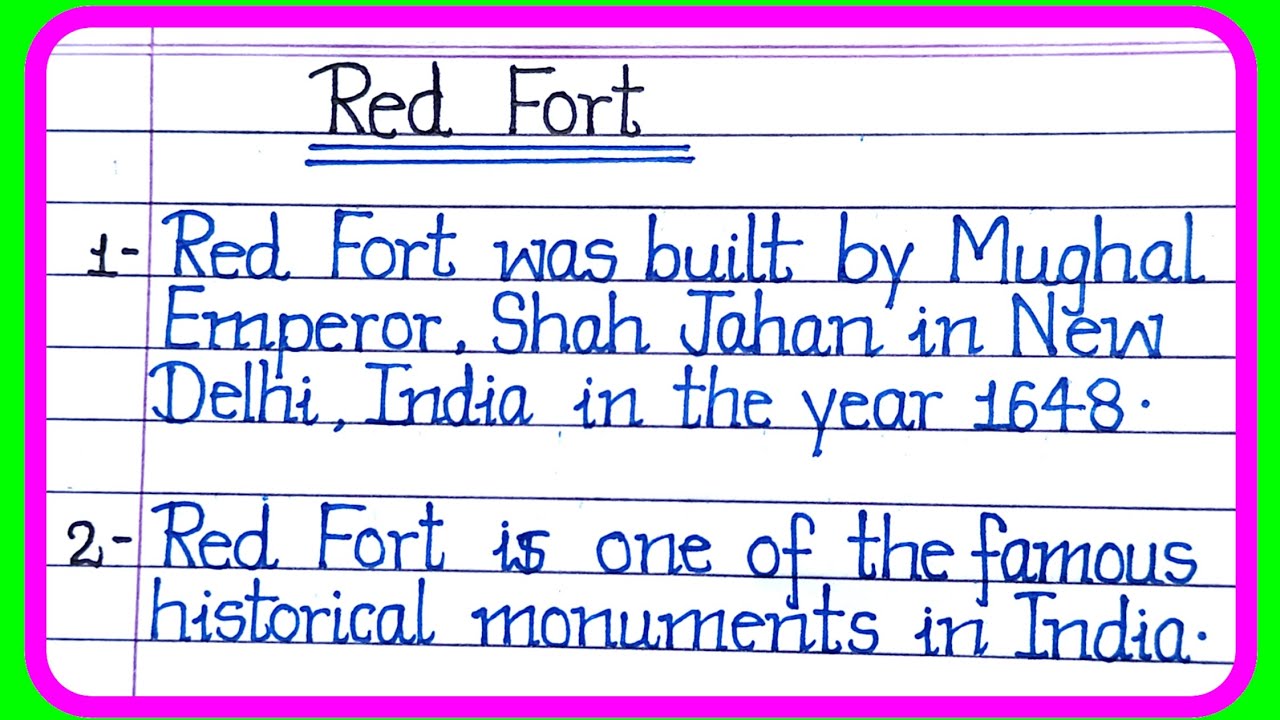 Red Fort
1- Red Fort was built by Mughal
Emperor, Shah Jahan in New
Delhi, India in the year 1648.
2- Red Fort is one of the famous
historical monuments in India.